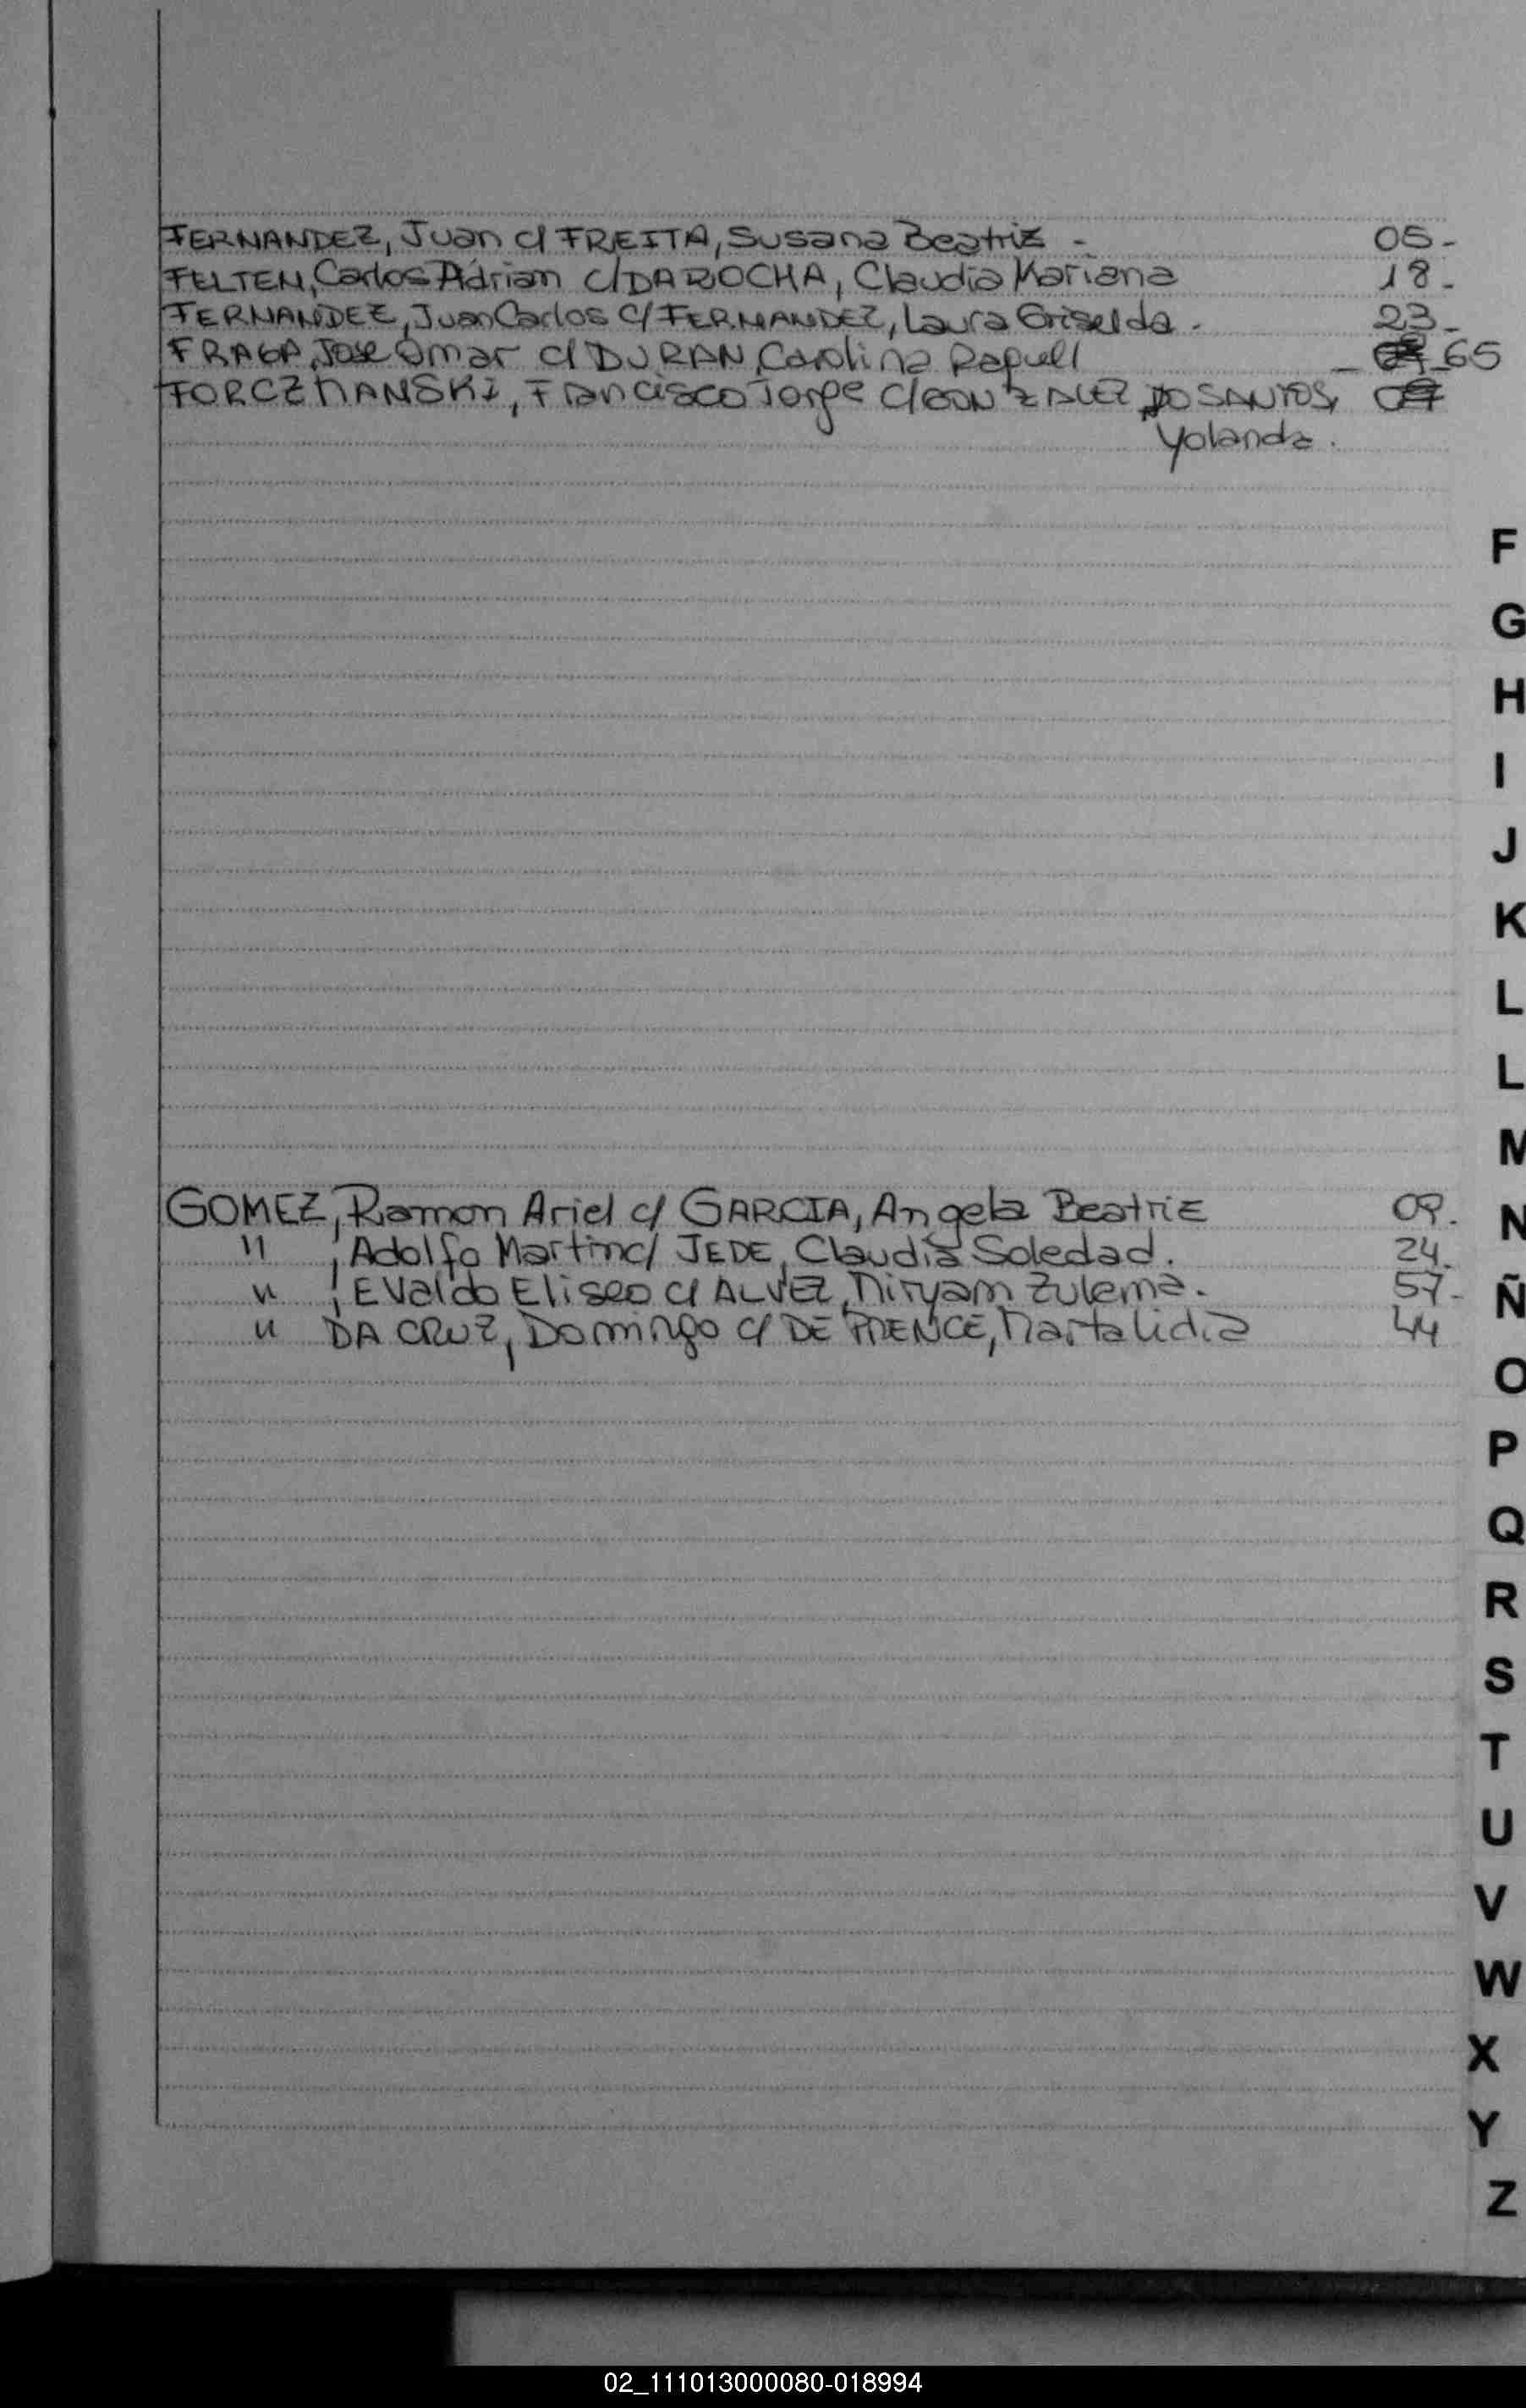 FERNANDEZ, Juan c/ FREITA, Susana Beatriz - 05-
FELTEN, Carlos Adrian c/ DA ROCHA, Claudia Mariana 18-
FERNANDEZ, Juan Carlos c/ FERNANDEZ, Laura Griselda. 23-
FRAGA, Jose Omar c/ DURAN, Carolina Raquell 65
FORCZMANSKI, Francisco Jorge c/ GONZALEZ DO SANTOS,
Yolanda.
F
G
H
I
J
K
L
L
M
GOMEZ, Ramon Ariel c/ GARCIA, Angela Beatriz 09.
" , Adolfo Martin c/ JEDE, Claudia Soledad. 24.
" , EValdo Eliseo c/ ALVEZ, Miryam Zulema. 57-
" DA CRUZ, Domingo c/ DE PRENCE, Marta Lidia 44
N
Ñ
O
P
Q
R
S
T
U
V
W
X
Y
Z
02_111013000080-018994